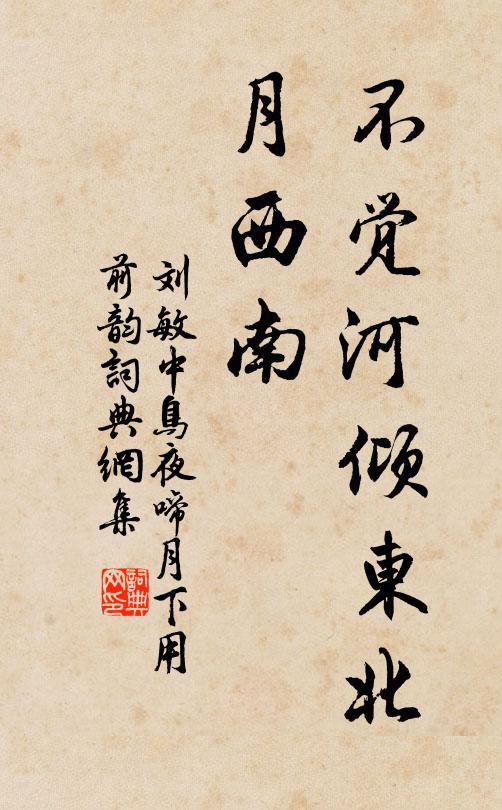 不觉河倾東北
月西南
刘敏中烏夜啼月下用
前韵詞典網集
詞典
网印